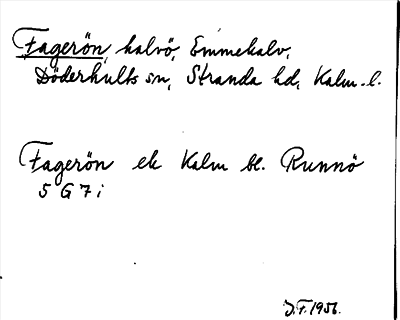 Fagerön, halvö, Emmekalv,
Döderhults sn, Stranda hd, Kalm. l.
Fagerön ek Kalm bl. Runnö
5 G 7 i
J.F. 1956.